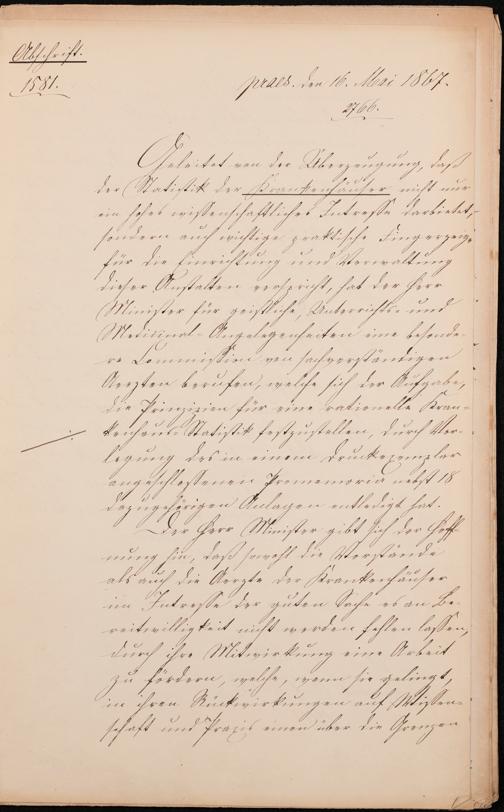 Abschrift.
1581.
praes. den 16. Mai 1867.
2766.
Geleitet von der Überzeugung, daß
der Statistik der Krankenhäuser nicht nur
ein hohes wissenschaftliches Intresse darbietet,
sondern auch wichtige praktische Fingerzeige
für die Einrichtung und Verwaltung
dieser Anstalten verspricht, hat der Herr
Minister für geistliche, Unterrichts- und
Medicinal-Angelegenheiten eine besonde-
re Commission von sachverständigen
Aerzten berufen, welche sich der Aufgabe,
die Prinzipien für eine rationelle Kran-
kenhaus Statistik festzustellen, durch Vor-
legung des in einem Druckexemplar
angeschlossenen Promemoria nebst 18
dazugehörigen Anlagen entledigt hat.
Der Herr Minister gibt sich der Hoff-
nung hin, daß sowohl die Vorstände
als auch die Aerzte der Krankenhäuser
im Intresse der guten Sache es an Be-
reitwilligkeit nicht werden fehlen lassen,
durch ihre Mitwirkung eine Arbeit
zu fördern, welche, wenn sie gelingt,
in ihren Rückwirkungen auf Wissen-
schaft und Praxis einen über die Grenzen